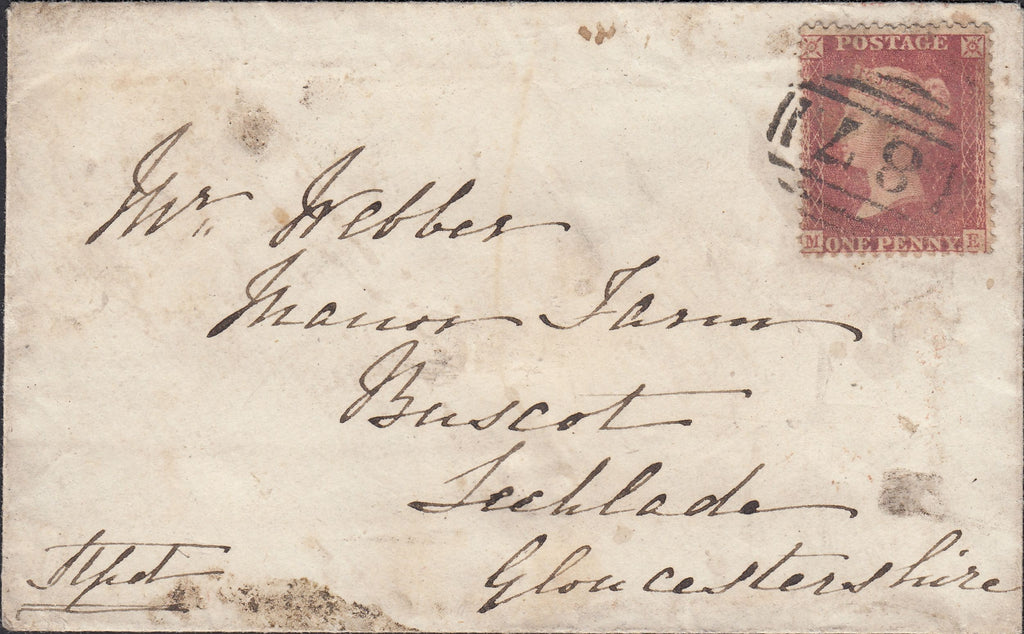 POSTAGE
78
M ONE PENNY E
Mr. Webber
Manor Farm
Buscot
Lechlade
Gloucestershire